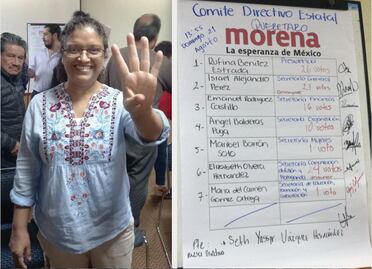 Comite Directivo Estatal
QUERETARO
13:55
Domingo 21
Agosto
morena
La esperanza de México
1- Rufina Benitez Estrada Presidencia 26 votos
2- Israel Alejandro Perez Secretaria General 23 votos
3- Emmanuel Rodriguez Castillo Secretaria Finanzas 16 votos
4- Angel Balderas Puga 10 votos
5- Maribel Barrón Soto Secretaria Mujeres 1 voto
6- Elizabeth Olvera Hernandez Secretaria Comunicación difusión y Propaganda 24 votos
7- Maria del Carmen Gomez Ortega Secretaria de Educación, formación y 1 voto
Pte: Seth Yassir Vázquez Hernández